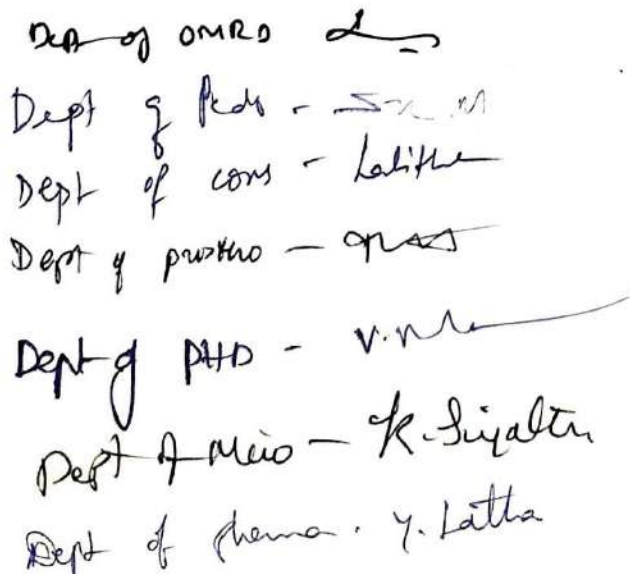 Dept of OMRD
Dept of Pedo -
Dept of cons - Lalitha
Dept of prostho -
Dept of PHD -
Dept of Micro -
Dept of pharma . Y. Latha